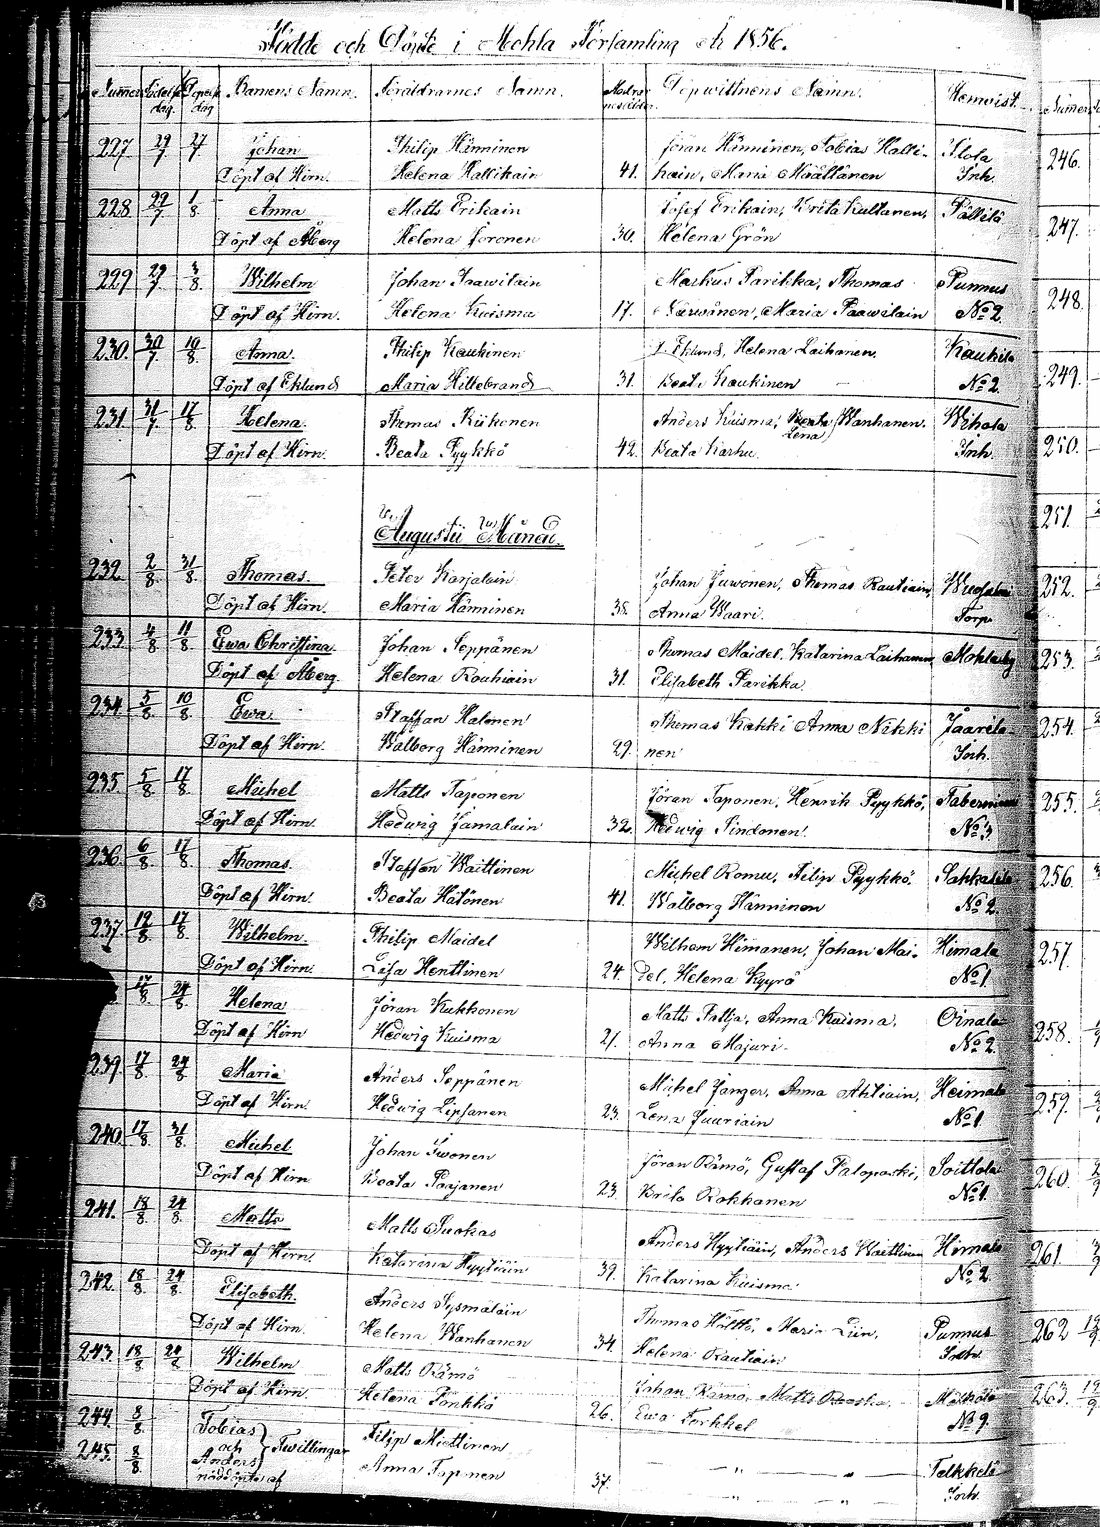 Födde och Döpte i Mohla Församling År 1856.
Numer Födelse dag. Döpelse dag Barnens Namn. Föräldrarnes Namn. Modrens ålder. Dopwittnens Namn. Hemvist.
227 29/7 27/7 Johan Philip Hänninen Jöran Hänninen, Tobias Halli- Ilola
Döpt af Hirn. Helena Hallikain 41. kain, Maria Määttänen Inh.
228. 29/7 1/8 Anna Matts Erikain Josef Erikain, Brita Kultanen, Pällilä
Döpt af Åberg Helena Joronen 30. Helena Grön
229 29/7 3/8 Wilhelm Johan Paawilain Markus Parikka, Thomas Punnus
Döpt af Hirn. Helena Kuisma 17. Närwänen, Maria Paawilain No 2.
230. 30/7 10/8 Anna. Philip Kaukinen Eklund, Helena Laihanen, Kaukila
Döpt af Eklund Maria Hillebrand 31. Beata Kaukinen No 2.
231 31/7 17/8 Helena. Thomas Kiikonen Anders Kuisma, Lena Wanhanen. Wihola
Döpt af Hirn. Beata Pyykkö 42. Beata Karhu. Inh.
Augustii Månad.
232. 2/8 31/8 Thomas. Peter Karjalain Johan Juwonen, Thomas Rautiain,
Döpt af Hirn. Maria Hänninen 38. Anna Waari. Torp.
233 4/8 11/8 Ewa Christina. Johan Seppänen Thomas Maidel, Katarina Laihanen, Mohlaby
Döpt af Åberg. Helena Rouhiain 31. Elisabeth Parikka.
234 5/8 10/8 Ewa. Staffan Halonen Thomas Kakki Anna Nikki Jaarila
Döpt af Hirn. Walborg Hänninen 29. nen Inh.
235. 5/8 17/8 Michel Matts Taponen Jöran Taponen, Henrik Pyykkö,
Döpt af Hirn. Hedwig Jamalain 32. Hedwig Pindonen. No 3.
236. 6/8 17/8 Thomas. Staffan Waittinen Michel Romu, Filip Pyykkö. Sakkala
Döpt af Hirn. Beata Hätönen 41. Walborg Hänninen No 2.
237. 12/8 17/8 Wilhelm. Philip Maidel Wilhem Himanen, Johan Mai- Himala
Döpt af Hirn. Lisa Henttinen 24. del, Helena Kyyrö No 1.
17/8 24/8 Helena Jöran Kukkonen Matts Pallja, Anna Kuisma, Oinala
Döpt af Hirn Hedwig Kuisma 21. Anna Majuri. No 2.
239. 17/8 24/8 Maria Anders Seppänen Michel Janger, Anna Ahtiain, Heimala
Döpt af Hirn. Hedwig Lipsanen 23. Lena Juuriain No 1.
240. 17/8 31/8 Michel Johan Iwonen Jöran Rämö, Gustaf Palopaski, Soittola
Döpt af Hirn Beata Paajanen 23. Brita Rokkanen No 1.
241. 18/8 24/8 Matts Matts Suokas Anders Hyytiäin, Anders Waittinen Himala
Döpt af Hirn. Katarina Hyytiäin 39. Katarina Kuisma. No 2.
242. 18/8 24/8 Elisabeth. Anders Sysmäläin Thomas Hölttö, Maria Liin, Punnus
Döpt af Hirn. Helena Wanhanen 34. Helena Rautiain Inh.
243. 18/8 24/8 Wilhelm Matts Rämö Johan Rämö,
Döpt af Hirn. Helena Pönkkä 26. Ewa Torkkel No 9.
244. 8/8 Tobias Filip Miettinen Telkkälä
och Twillingar
245. 8/8 Anders Anna Toponen 37. Inh.
nöddöpta af
246.
247.
248.
249.
250.
251.
252.
253.
254.
255.
256.
257.
258.
259.
260.
261.
262
263.